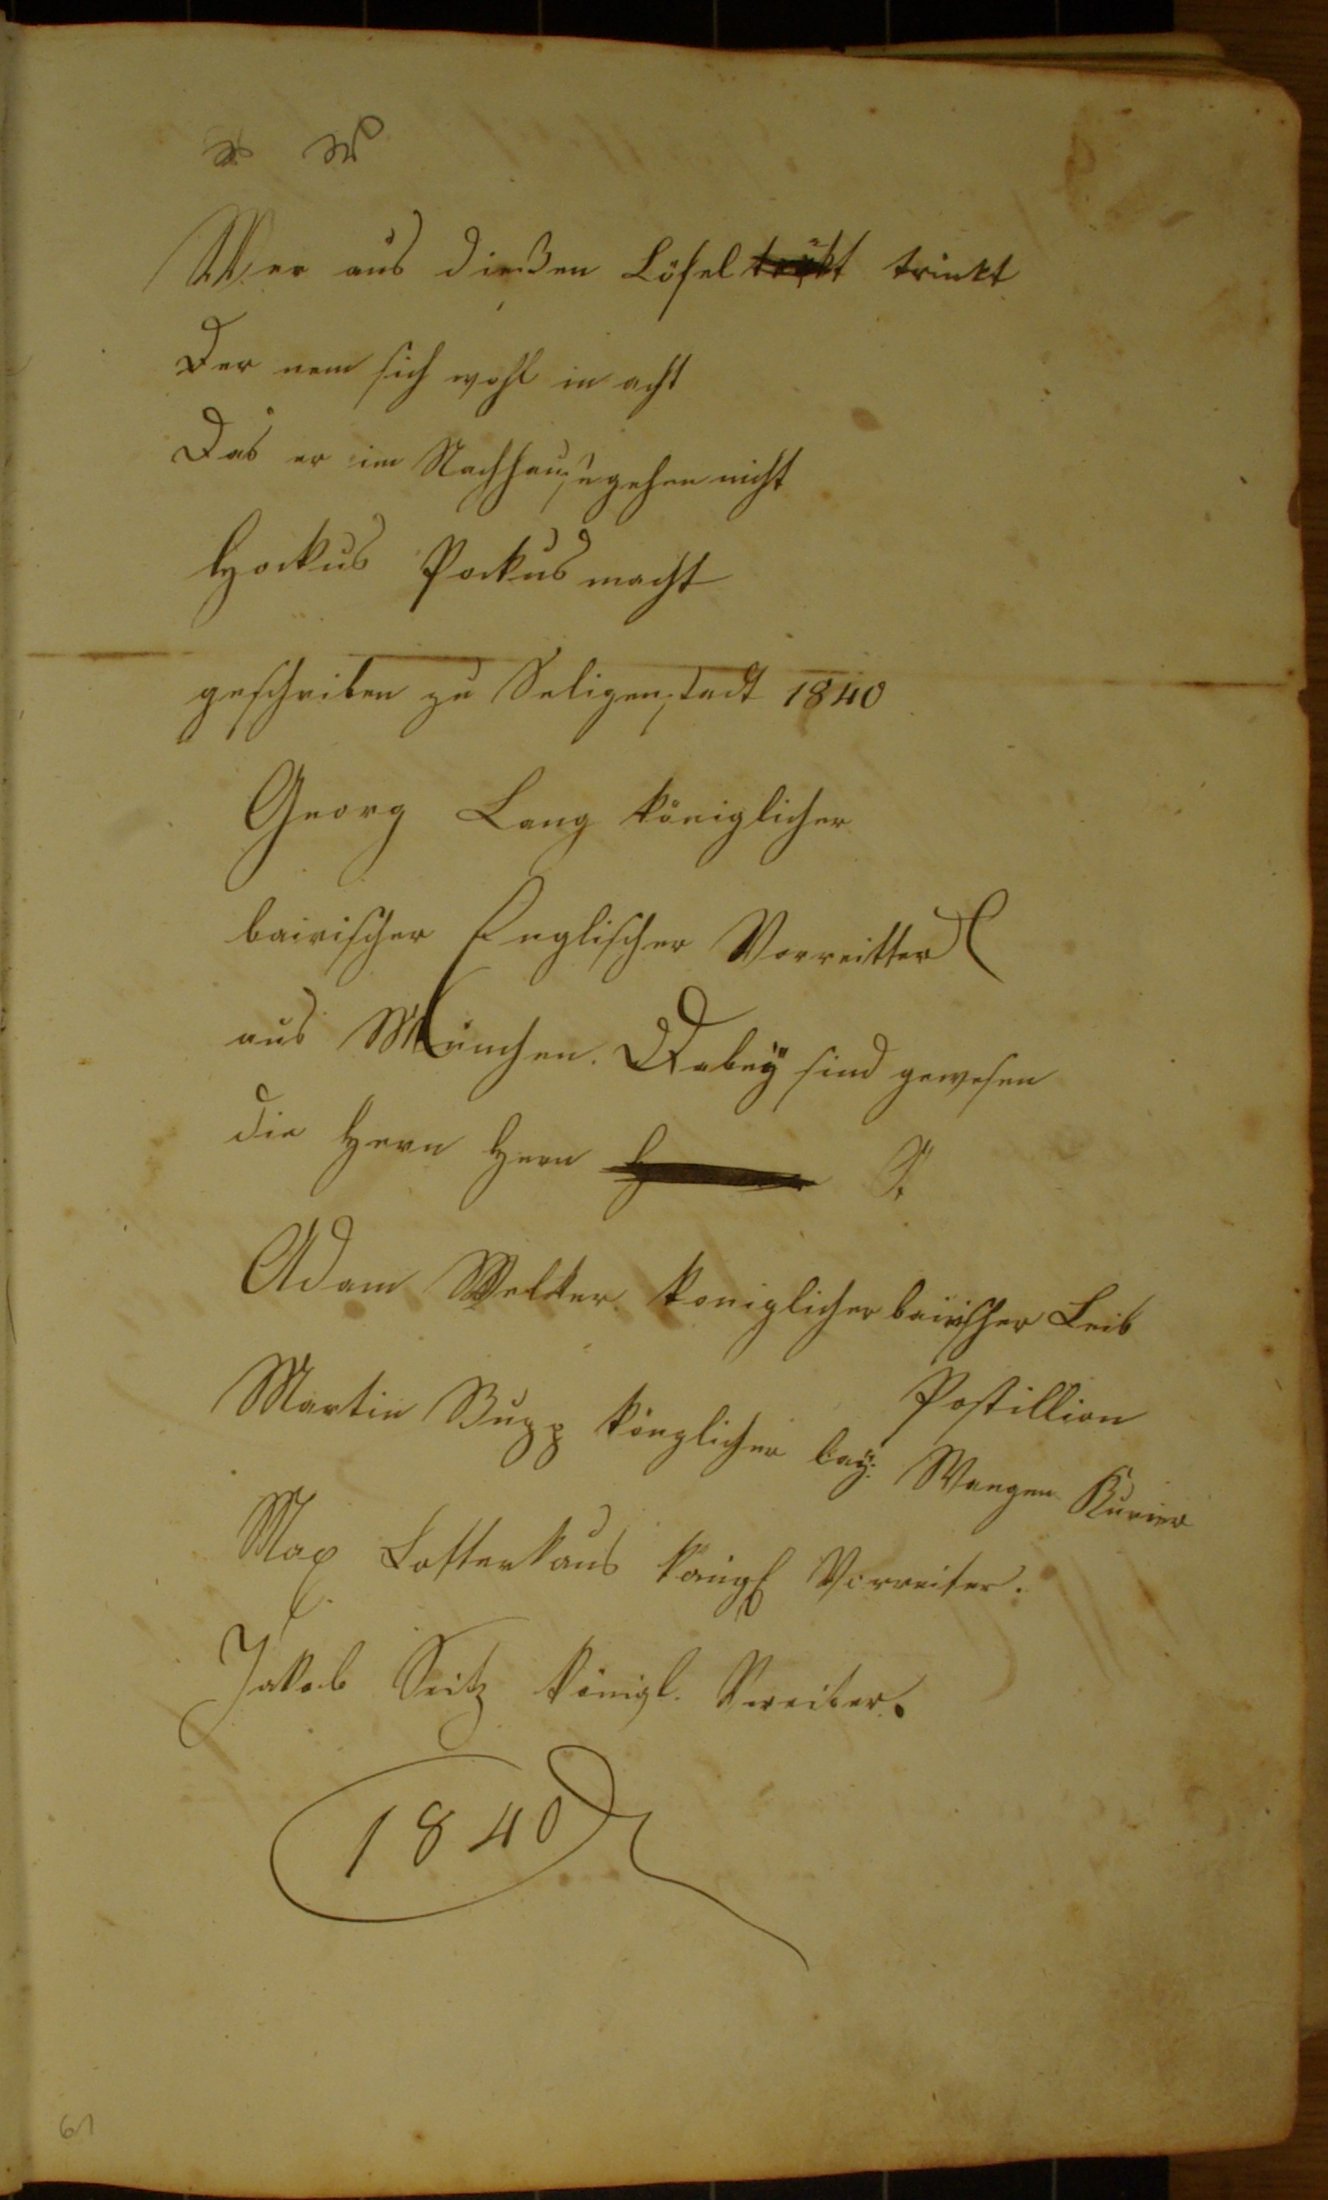 W
Wer aus dießen Löfel trinkt
Der nem sich wohl in acht
Das er im Nachhausegehen nicht
Hockus Pockus macht
geschriben zu Seligenstadt 1840
Georg Lang königlicher
bairischer Englischer Vorreitter
aus München. Dabeÿ sind gewesen
die Hern Hern
Adam Welker königlicher bairischer Leib
Postillion
Martin Bupp könglicher baÿ: Wangen Kurier
Max Lotterkaus königl Vorreiter.
Jakob Seitz königl. Vorreiter.
1840
61